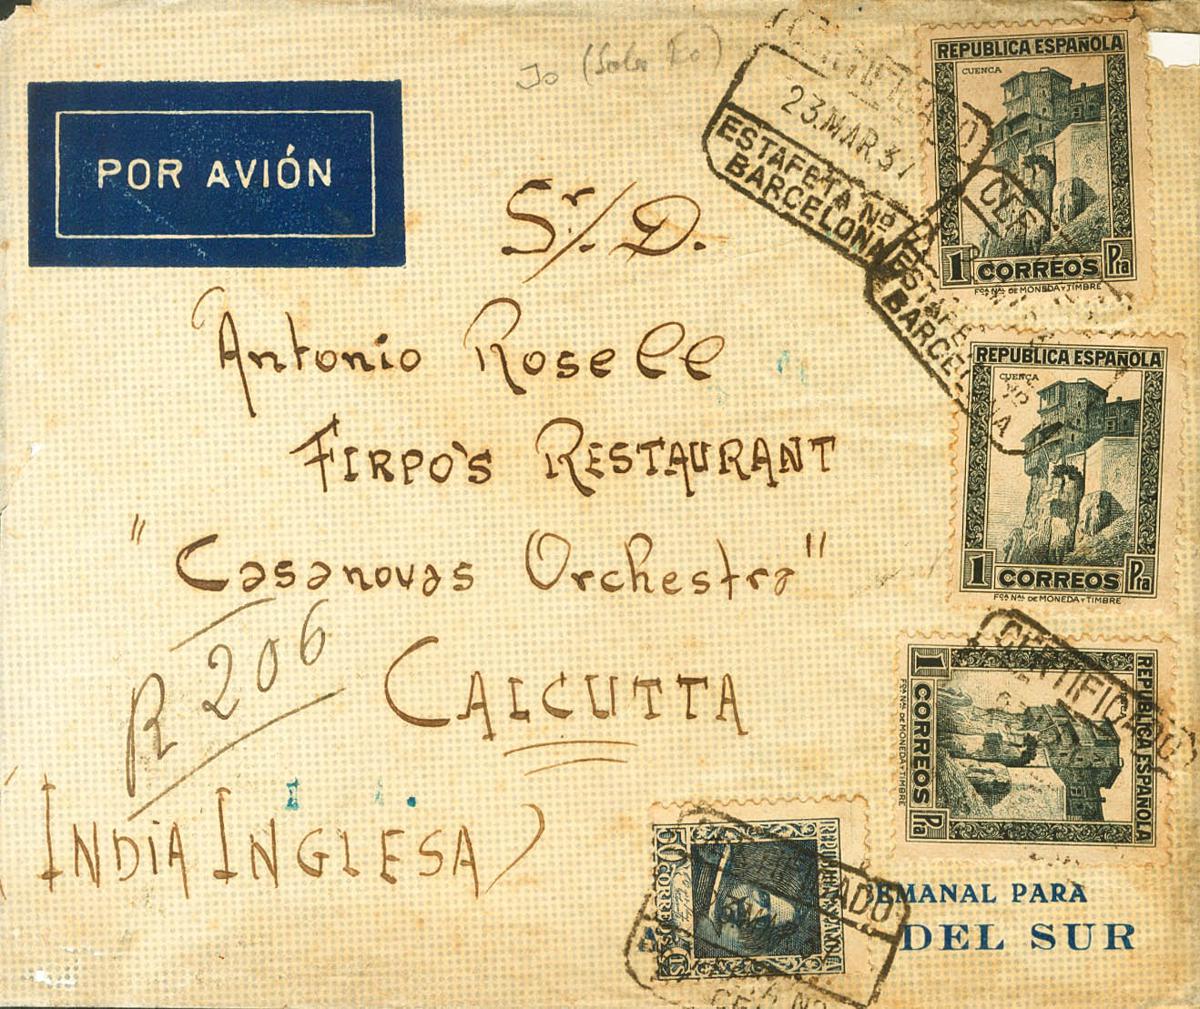 POR AVIÓN
Jo
CERTIFICADO
23.MAR 37
ESTAFETA Nº
BARCELONA
REPUBLICA ESPAÑOLA
CUENCA
1 CORREOS Pta
Fca. Nal. DE MONEDA Y TIMBRE
Sr./ D.
Antonio Rosell
FIRPO'S RESTAURANT
"Casanovas Orchestra"
R 206
CALCUTTA
(INDIA INGLESA)
ESTAFE
BARCELONA
REPUBLICA ESPAÑOLA
CUENCA
1 CORREOS Pta
Fca. Nal. DE MONEDA Y TIMBRE
CERTIFICADO
REPUBLICA ESPAÑOLA
1 CORREOS Pta
Fca. Nal. DE MONEDA Y TIMBRE
50 CORREOS CTS
REPUBLICA ESPAÑOLA
ADO
EMANAL PARA
DEL SUR